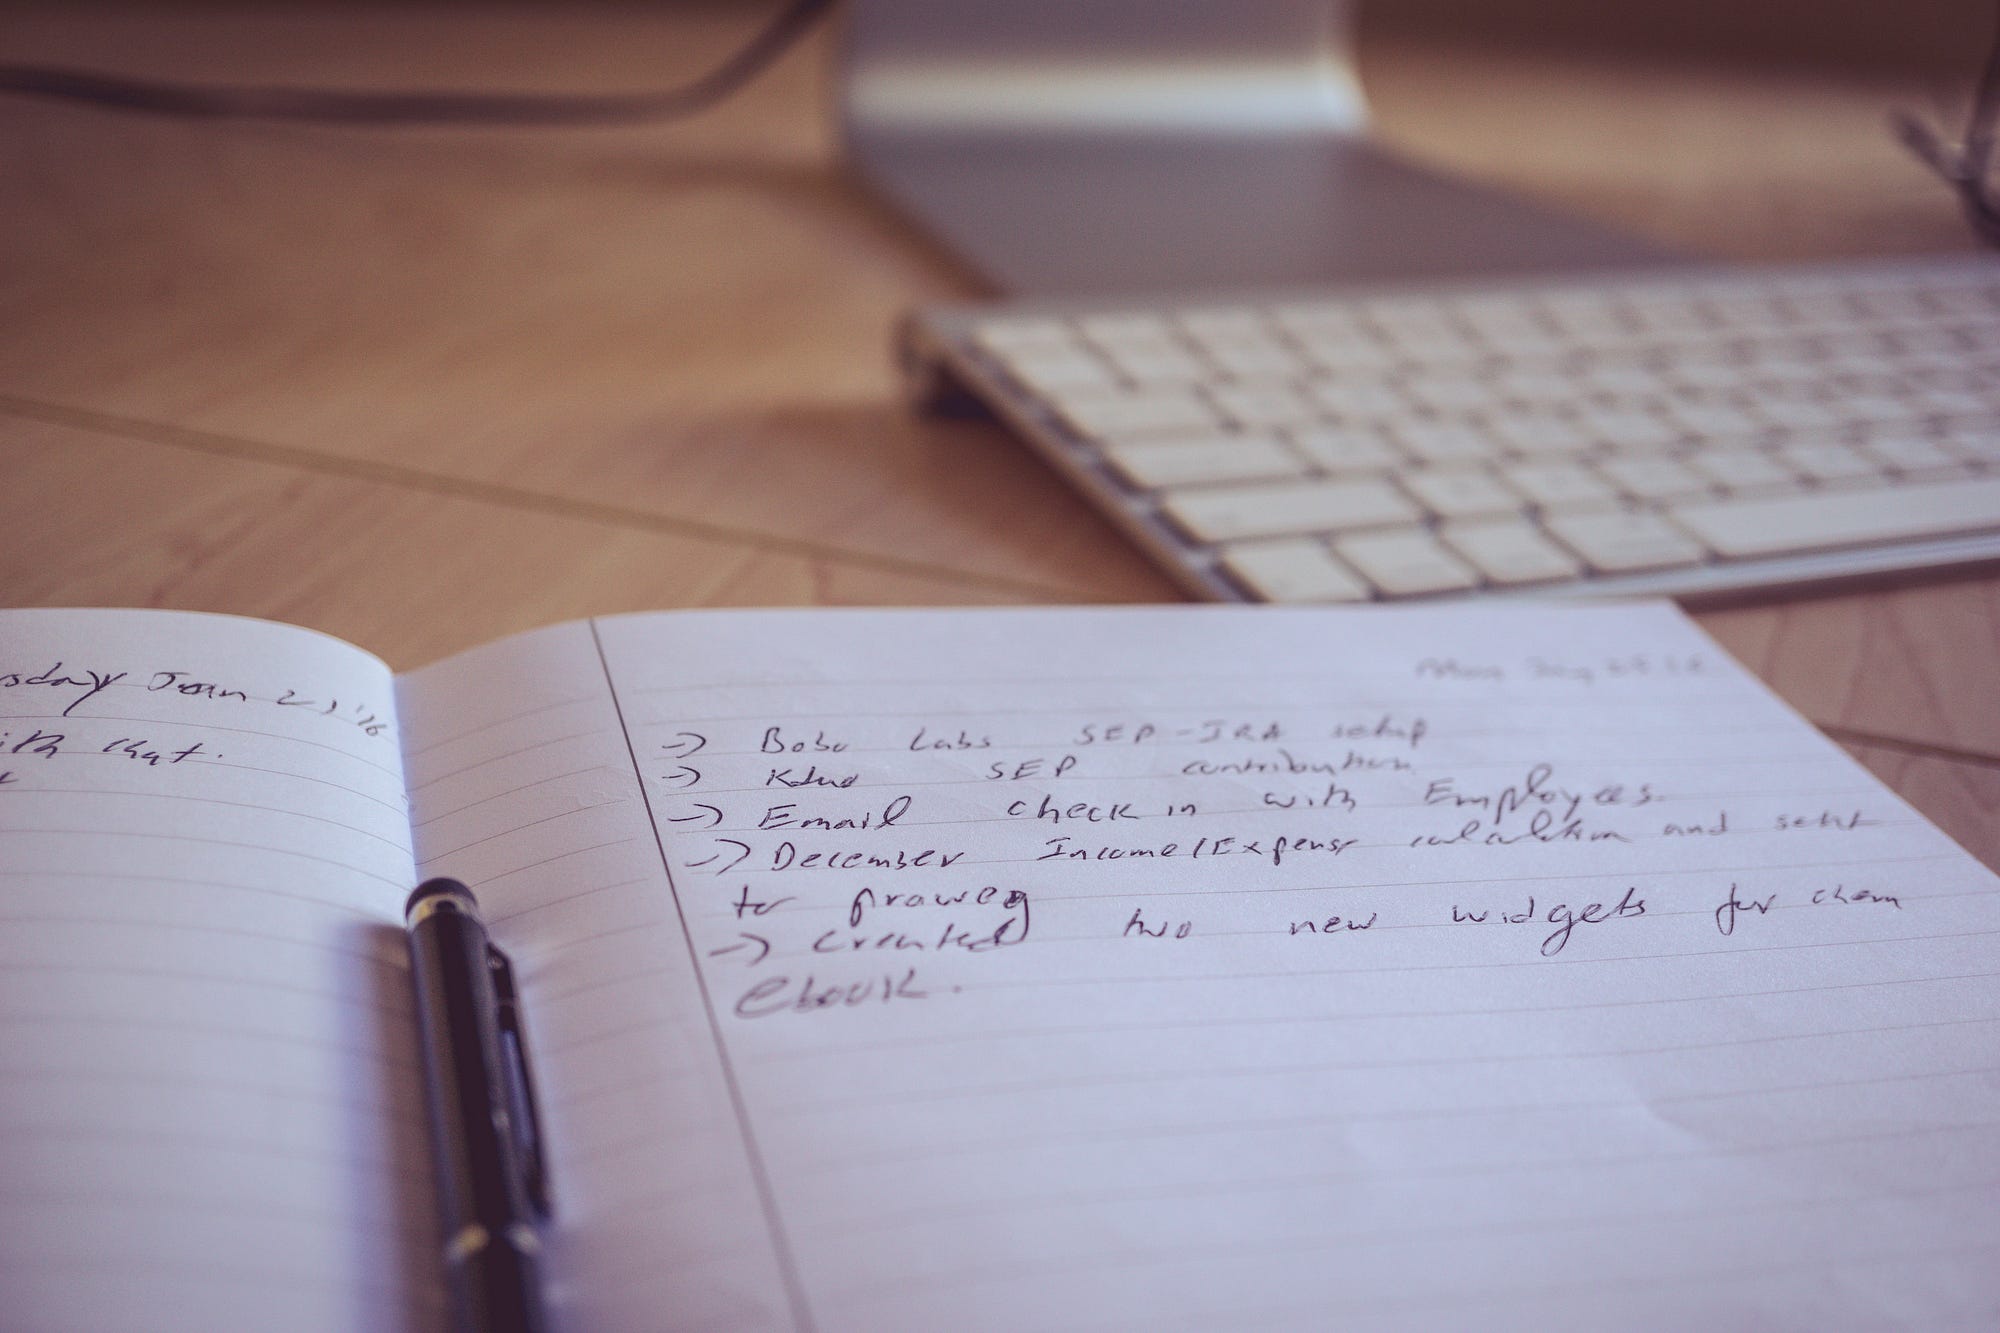 Jan 21, '16
chat.
→ Bobo Labs SEP-IRA setup
→ SEP contribution
→ Email check in with Employees.
→ December Income/Expense calculation and sent
to praweg
→ created two new widgets for chem
ebook.